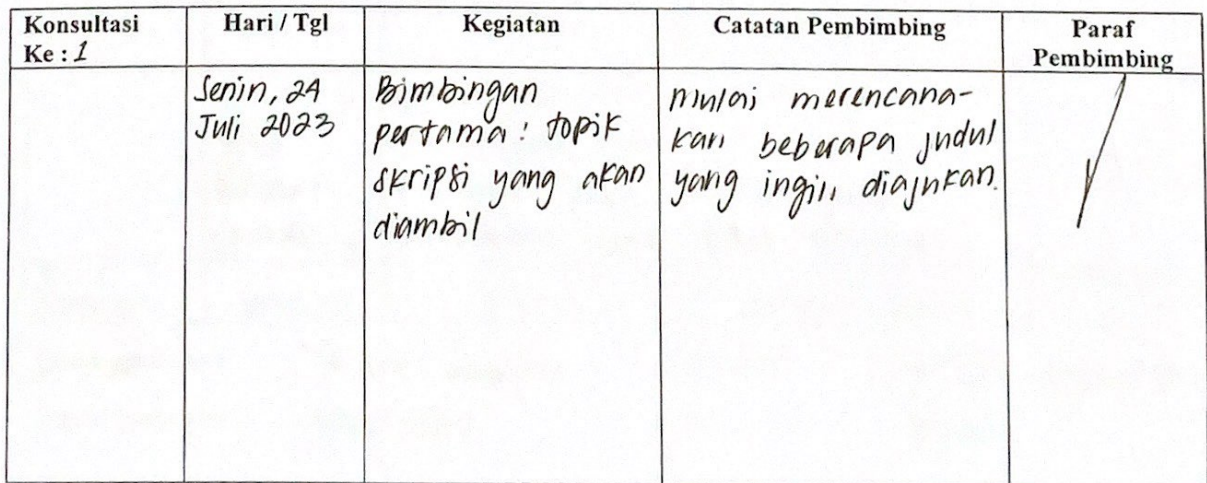 Konsultasi Ke : 1
Hari / Tgl
Kegiatan
Catatan Pembimbing
Paraf Pembimbing
Senin, 24
Juli 2023
Bimbingan
pertama : topik
skripsi yang akan
diambil
Mulai merencana-
kan beberapa judul
yang ingin diajukan.